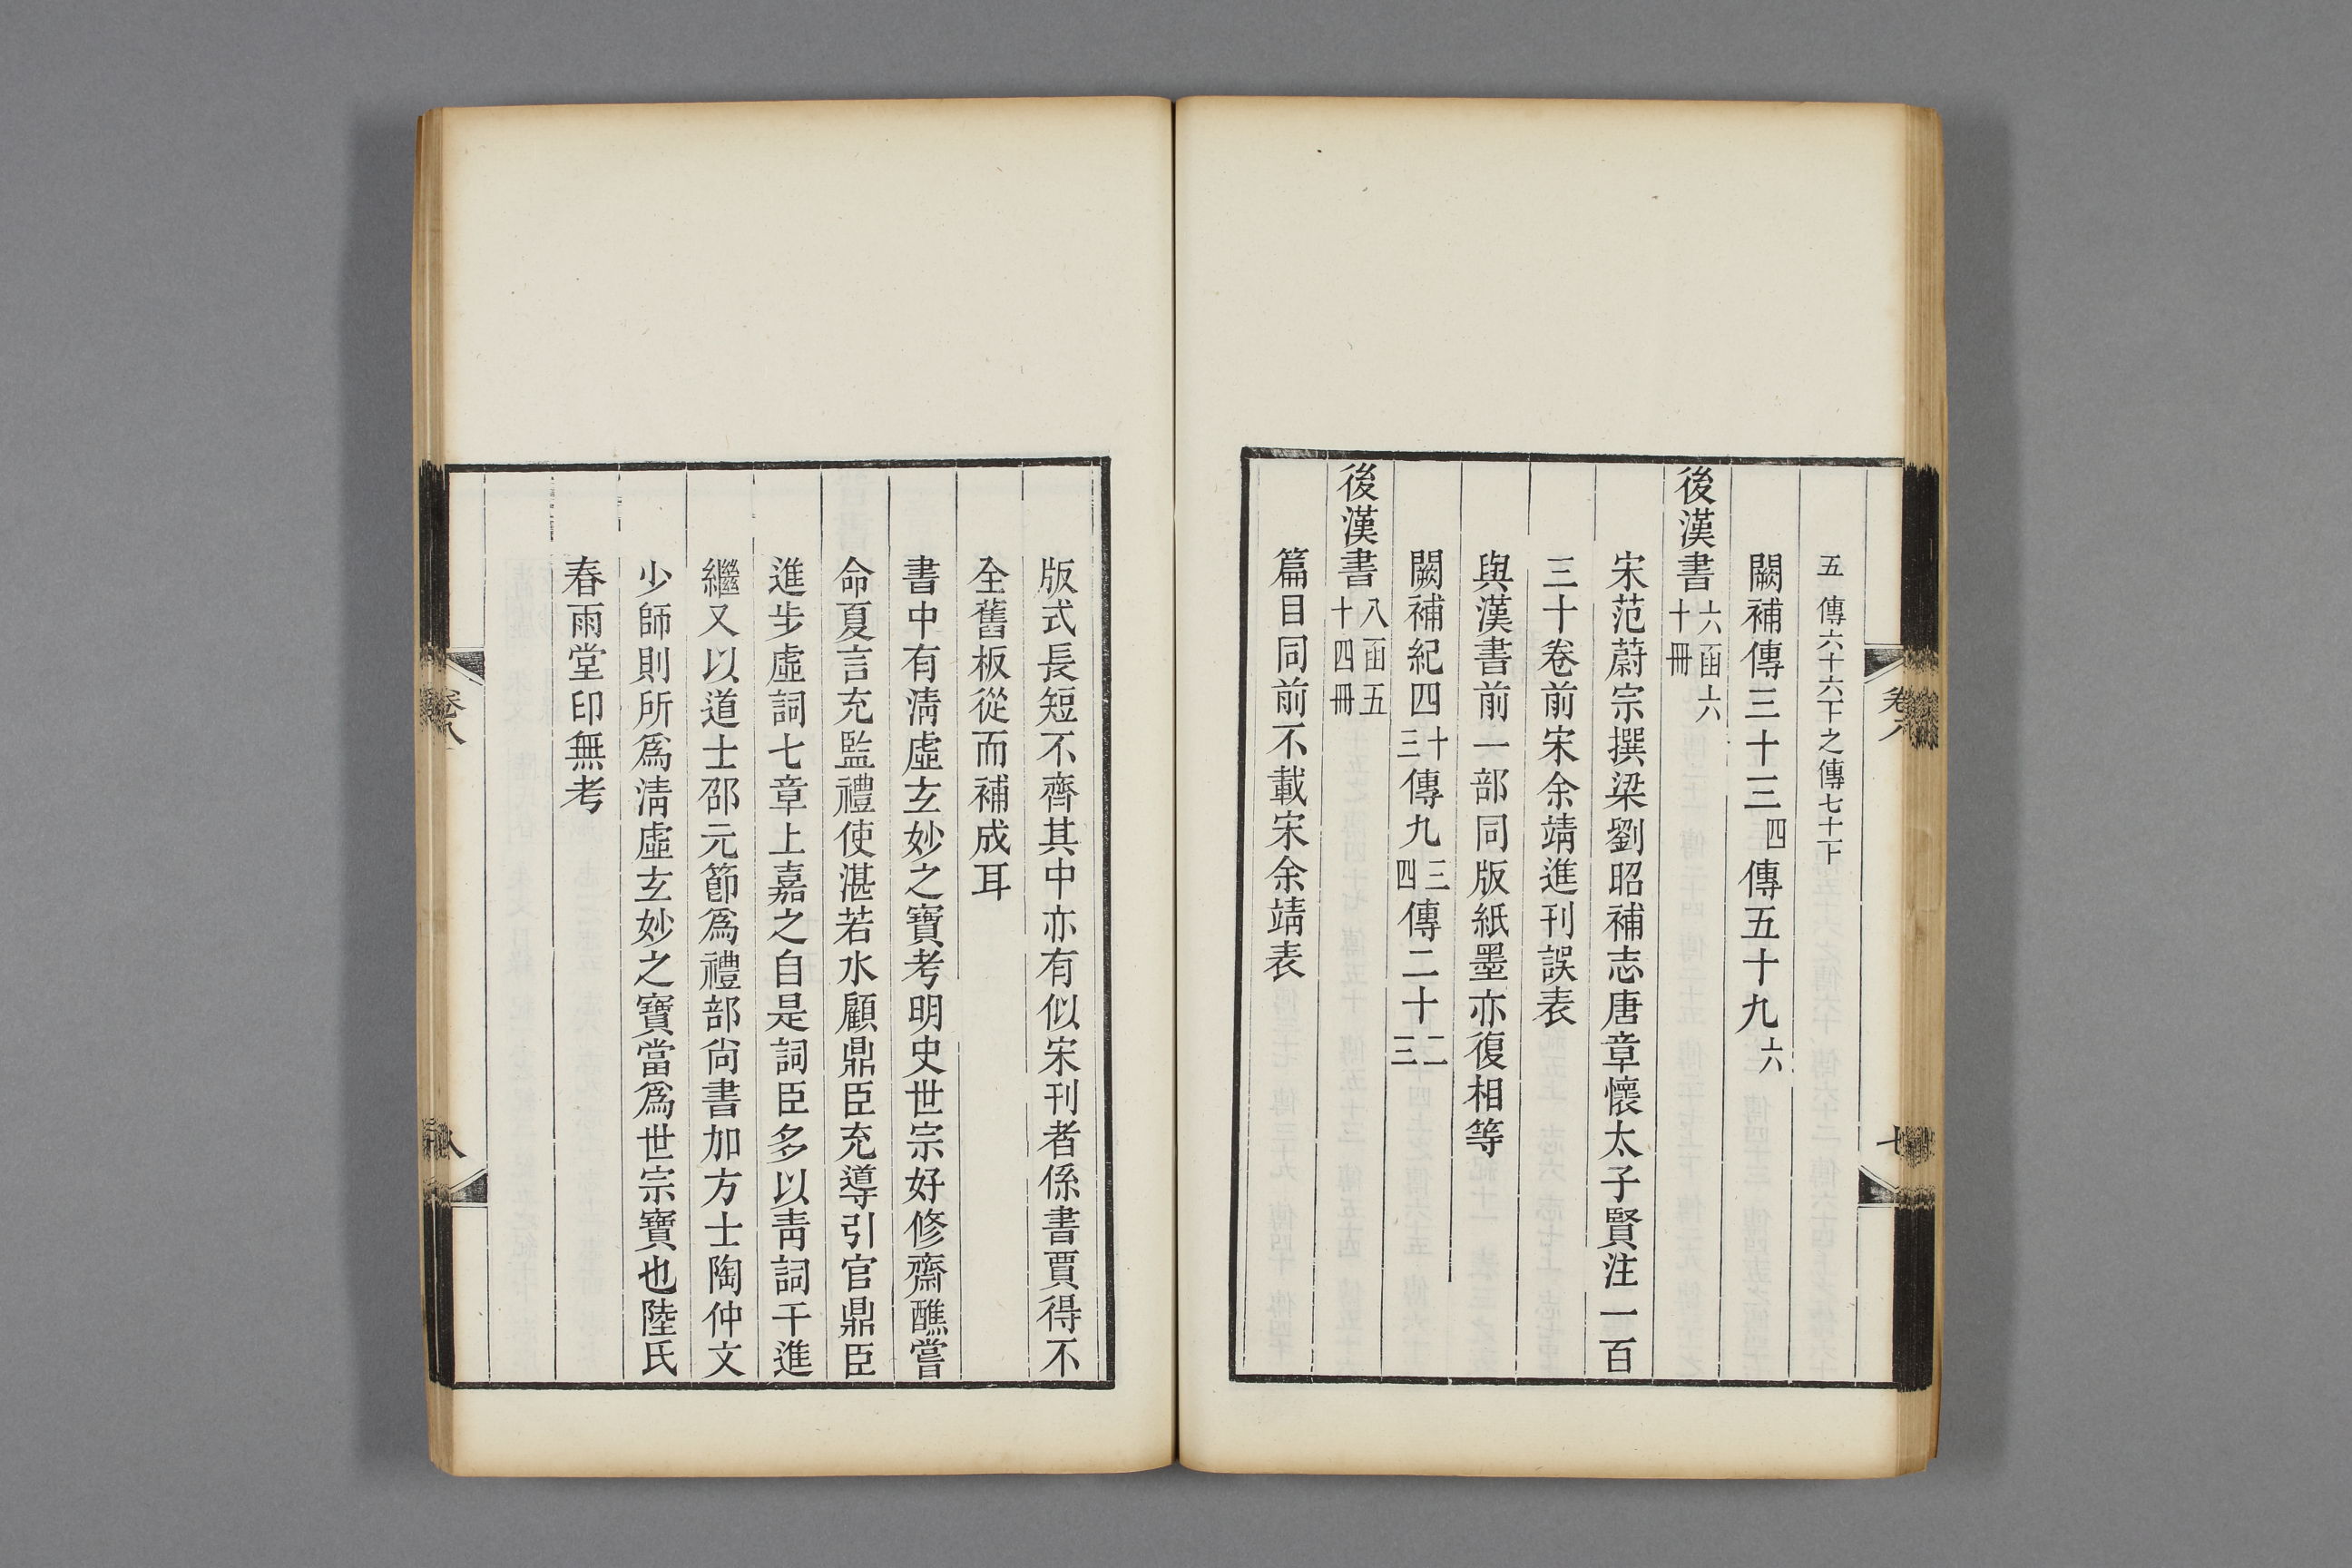 五 傳六十六下之傳七十下
闕補傳三十三四傳五十九六
後漢書六函六十冊
宋范蔚宗撰梁劉昭補志唐章懷太子賢注一百
三十卷前宋余靖進刊誤表
與漢書前一部同版紙墨亦復相等
闕補紀四十三傳九三四傳二十二三
後漢書八函五十四冊
篇目同前不載宋余靖表
版式長短不齊其中亦有似宋刊者係書賈得不
全舊板從而補成耳
書中有淸虛玄妙之寶考明史世宗好修齋醮嘗
命夏言充監禮使湛若水顧鼎臣充導引官鼎臣
進步虛詞七章上嘉之自是詞臣多以靑詞干進
繼又以道士邵元節爲禮部尙書加方士陶仲文
少師則所爲淸虛玄妙之寶當爲世宗寶也陸氏
春雨堂印無考
卷八
八